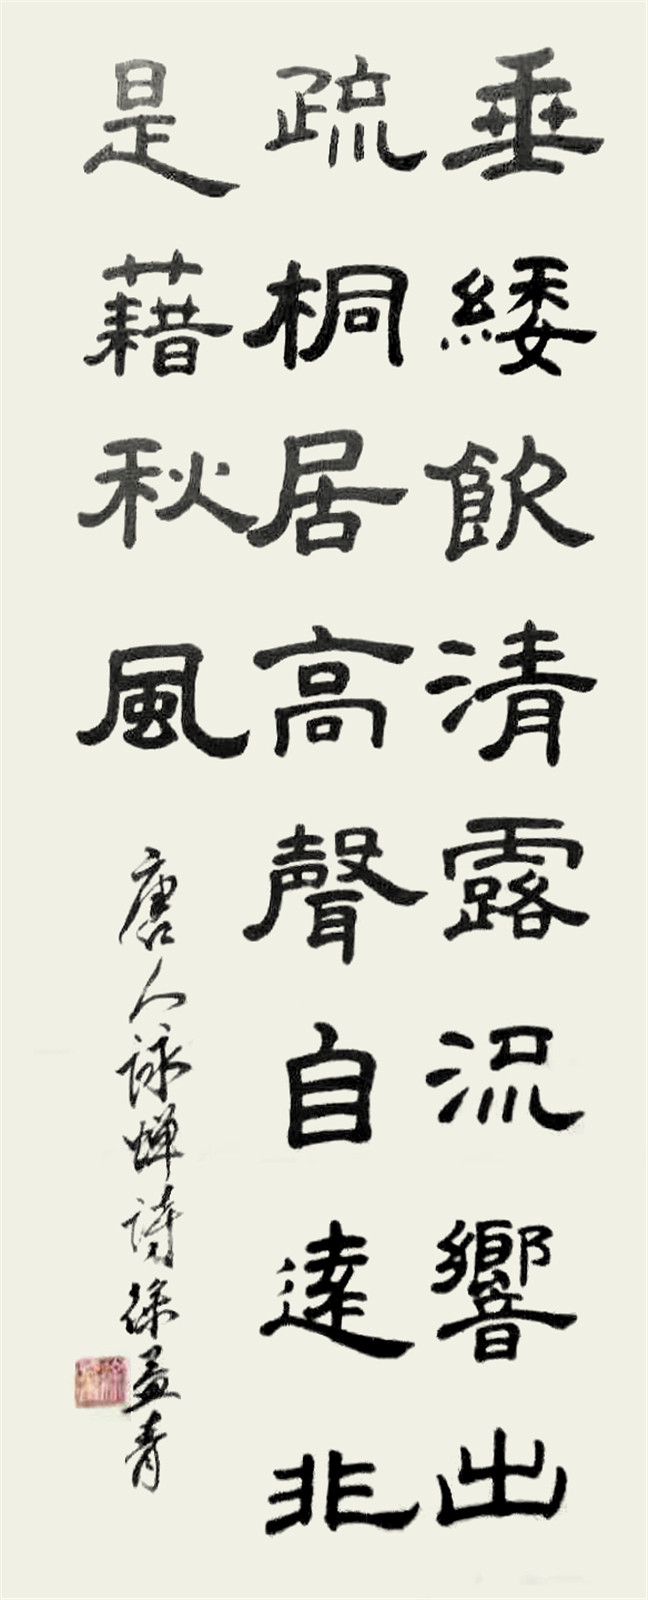 垂緌飲清露況響出
疏桐居高聲自達非
是藉秋風
唐人詠蟬詩徐益青